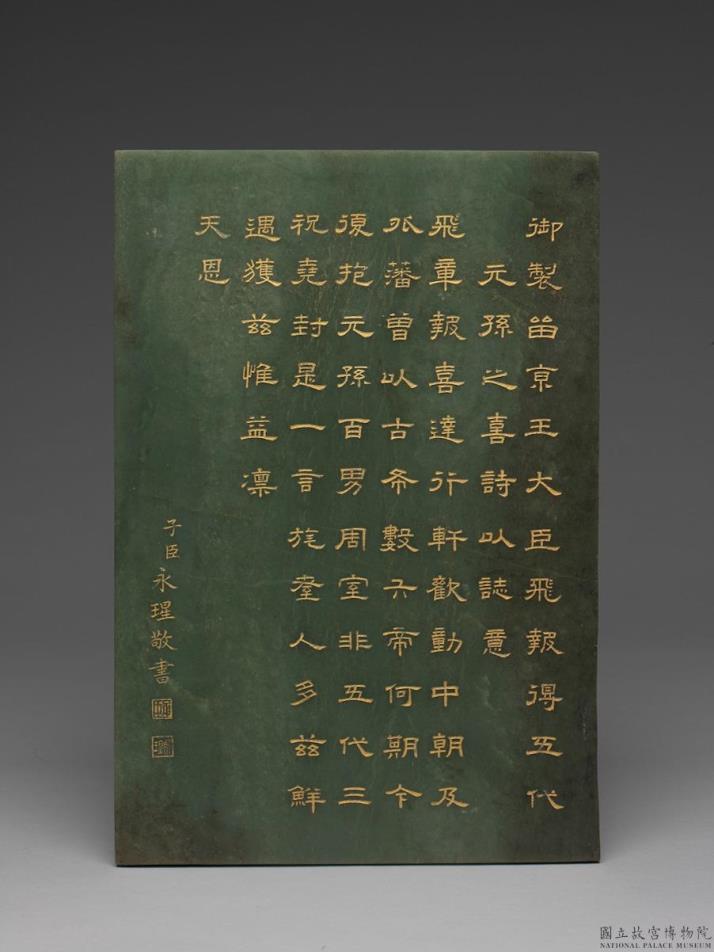 御製畱京王大臣飛報得五代
元孫之喜詩以誌意
飛章報喜達行軒歡動中朝及
外藩曾以古希數六帝何期今
復抱元孫百男周室非五代三
祝堯封是一言旄耋人多茲鮮
遇獲茲惟益凛
天恩
子臣永瑆敬書
國立故宮博物院
NATIONAL PALACE MUSEUM